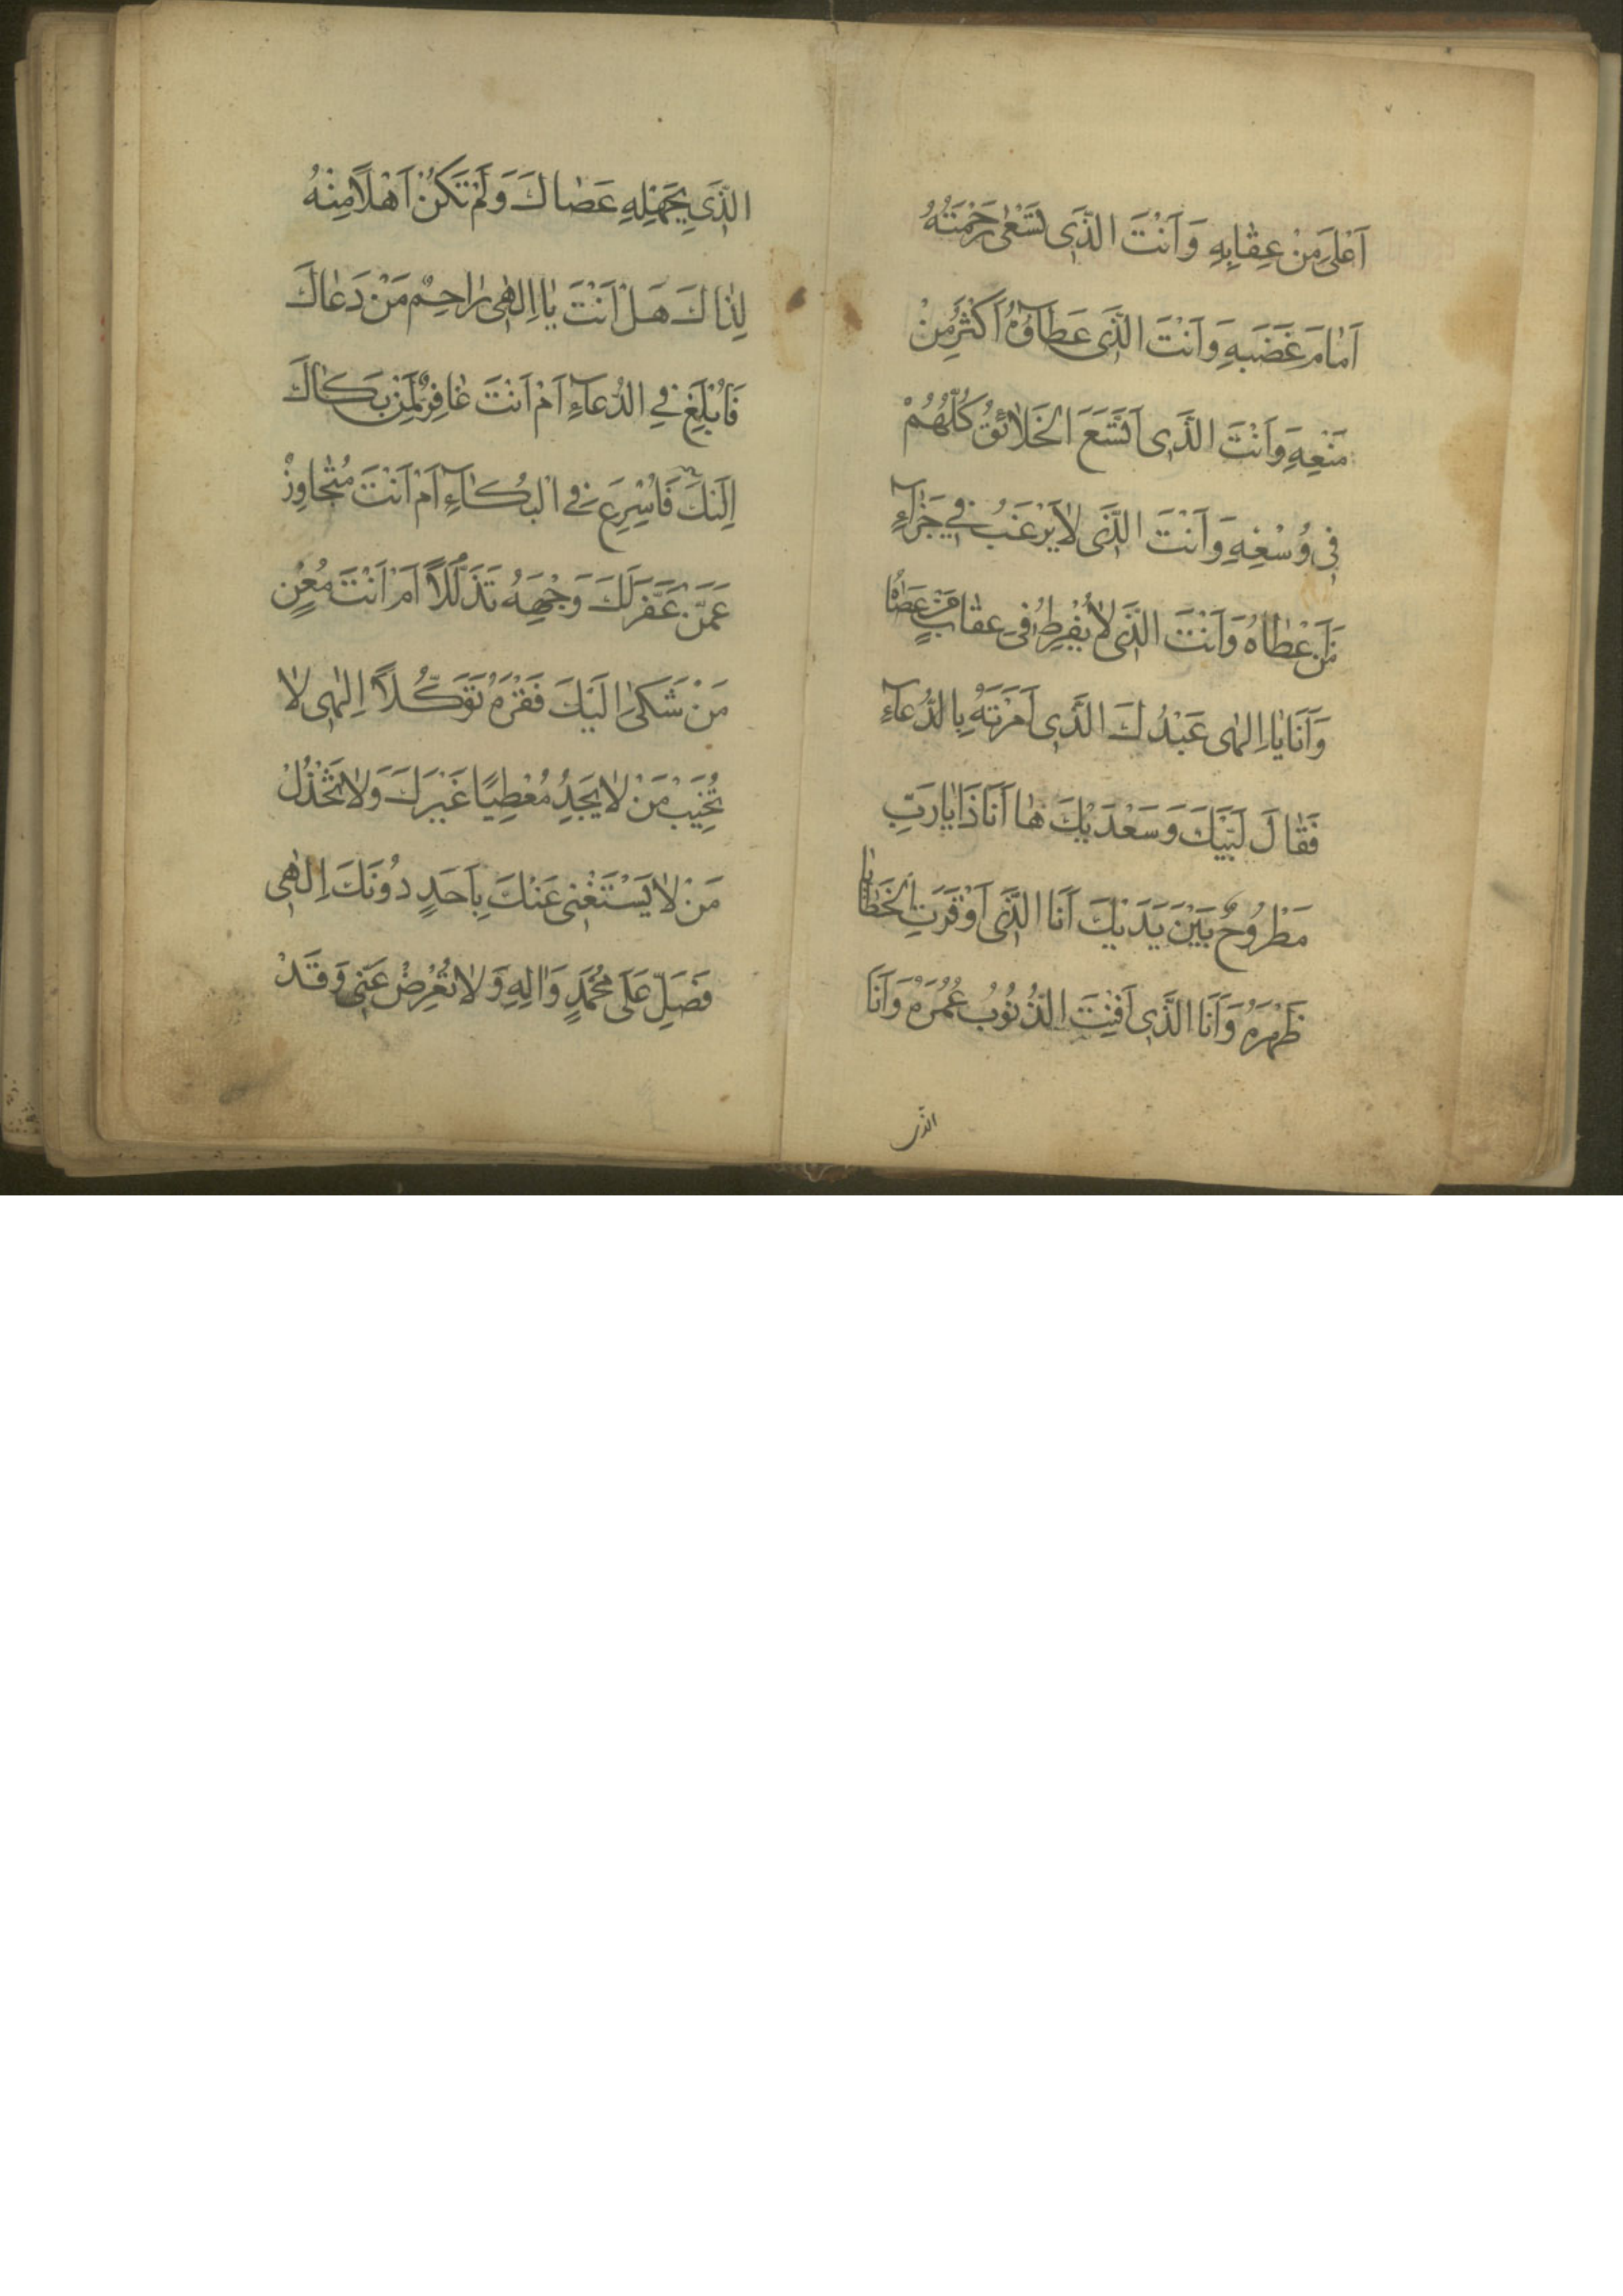 اَعْلىٰ مِنْ عِقٰابِهِ وَاَنْتَ الَّذَى تَسْعٰى رَحْمَتُهُ
اَمٰامَ غَضَبِهِ وَاَنْتَ الَّذَى عَطٰآؤُهُ اَكْثَرُ مِنْ
مَنْعِهِ وَاَنْتَ الَّذَى اتَّسَعَ الْخَلاٰئِقُ كُلُّهُمْ
فِى وُسْعِهِ وَاَنْتَ الَّذَى لاٰ يَرْغَبُ فِي جَزٰآءِ
مَنْ اَعْطٰاهُ وَاَنْتَ الَّذَى لاٰ يُفْرِطُ فِى عِقٰابِ مَنْ عَصٰاهُ
وَاَنَا يٰا اِلٰهِى عَبْدُكَ الَّذِى اَمَرْتَهُ بِالدُّعٰآءِ
فَقٰالَ لَبَّيْكَ وَسَعْدَيْكَ هٰا اَنَا ذَا يٰا رَبِّ
مَطْرُوحٌ بَيْنَ يَدَيْكَ اَنَا الَّذَى اَوْقَرَتِ الْخَطٰايٰا
ظَهْرَهُ وَاَنَا الَّذِى اَفْنَتِ الذُّنُوبُ عُمُرَهُ وَاَنَا
الذى
الَّذَى بِجَهْلِهِ عَصٰاكَ وَلَمْ تَكُنْ اَهْلاً مِنْهُ
لِذٰاكَ هَلْ اَنْتَ يٰا اِلٰهِى رٰاحِمٌ مَنْ دَعٰاكَ
فَاُبْلِغَ فِي الدُّعٰآءِ اَمْ اَنْتَ غٰافِرٌ لِمَنْ بَكٰاكَ
اِلَيْكَ فَاُسْرِعَ فِي الْبُكٰآءِ اَمْ اَنْتَ مُتَجٰاوِزٌ
عَمَّنْ عَفَّرَ لَكَ وَجْهَهُ تَذَلُّلاً اَمْ اَنْتَ مُغْنٍ
مَنْ شَكىٰ اِلَيْكَ فَقْرَهُ تَوَكُّلاً اِلٰهِى لاٰ
تُخَيِّبْ مَنْ لاٰ يَجِدُ مُعْطِيًا غَيْرَكَ وَلاٰ تَخْذُلْ
مَنْ لاٰ يَسْتَغْنِى عَنْكَ بِاَحَدٍ دُونَكَ اِلٰهِى
فَصَلِّ عَلَى مُحَمَّدٍ وَاٰلِهِ وَلاٰ تُعْرِضْ عَنِّى وَقَدْ